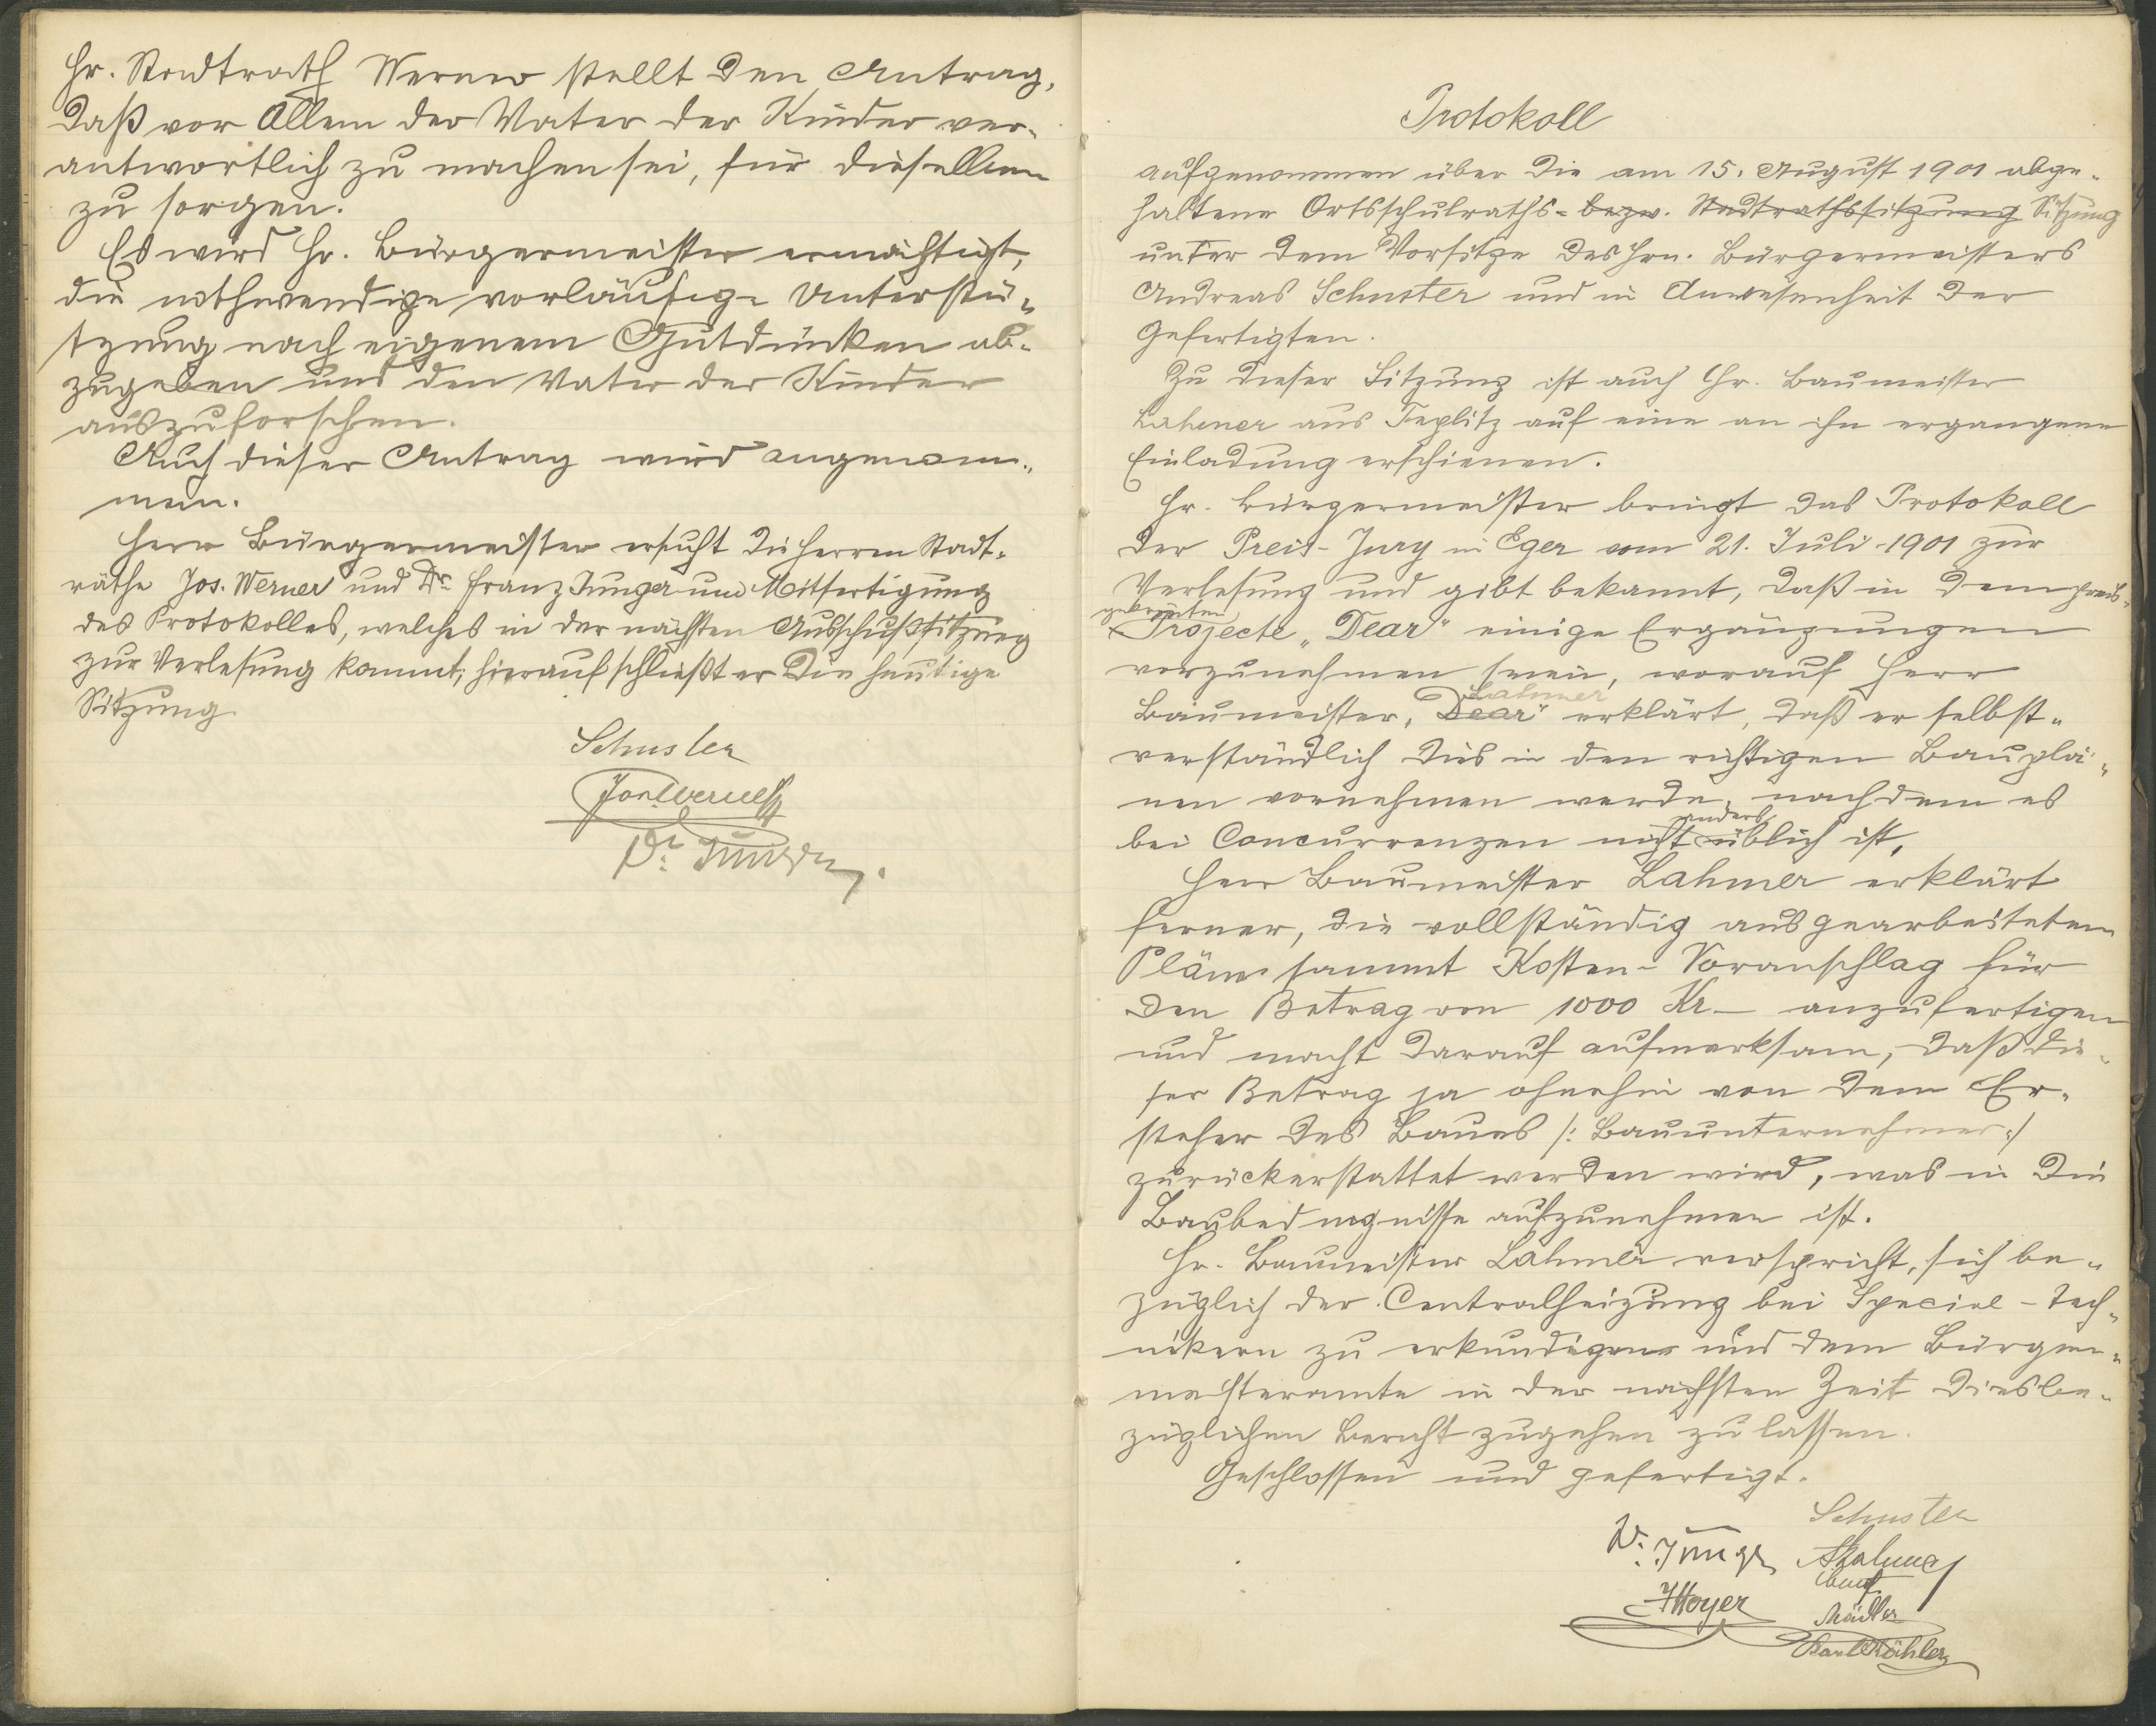 Hr. Stadtrath Werner stellt den Antrag,
daß vor Allem der Vater der Kinder ver-
antwortlich zu machen sei, für dieselben
zu sorgen.
Es wird Hr. Bürgermeister ermächtigt,
die nothwendige vorläufige Unterstü-
tzung nach eigenem Gutdünken ab-
zugeben und den Vater der Kinder
auszuforschen.
Auch dieser Antrag wird angenom-
men.
Herr Bürgermeister ersucht die Herren Stadt-
räthe Jos. Werner und Dr. Franz Junger um Mitfertigung
des Protokolles, welches in der nächsten Ausschußsitzung
zur Verlesung kommt; hierauf schließt er die heutige
Sitzung.
Schuster
Jos. Werner
Dr. Junger.
Protokoll
aufgenommen über die am 15. August 1901 abge-
haltene Ortsschulraths- bezw. Stadtrathssitzung Sitzung
unter dem Vorsitze des Hrn. Bürgermeisters
Andreas Schuster und in Anwesenheit der
Gefertigten.
Zu dieser Sitzung ist auch Hr. Baumeister
Lahmer aus Teplitz auf eine an ihn ergangene
Einladung erschienen.
Hr. Bürgermeister bringt das Protokoll
der Preis-Jury in Eger vom 21. Juli 1901 zur
Verlesung und gibt bekannt, daß in dem preis-
gekrönten
Projecte „Dear“ einige Ergänzungen
vorzunehmen seien, worauf Herr
Lahmer
Baumeister „Dear“ erklärt, daß er selbst-
verständlich dies in den richtigen Bauplä-
nen vornehmen werde, nachdem es
anders
bei Concurrenzen nicht üblich ist.
Herr Baumeister Lahmer erklärt
ferner, die vollständig ausgearbeiteten
Pläne sammt Kosten-Voranschlag für
den Betrag von 1000 Kr – anzufertigen
und macht darauf aufmerksam, daß die-
ser Betrag ja ohnehin von dem Er-
steher des Baues /: Bauunternehmer :/
zurückerstattet werden wird, was in die
Baubedingnisse aufzunehmen ist.
Hr. Baumeister Lahmer verspricht, sich be-
züglich der Centralheizung bei Special-Tech-
nikern zu erkundigen und dem Bürger-
meisteramte in der nächsten Zeit diesbe-
züglichen Bericht zugehen zu lassen.
Geschlossen und gefertigt.
Schuster
Dr. Junger
Hoyer
Mädler
Karl Köhler